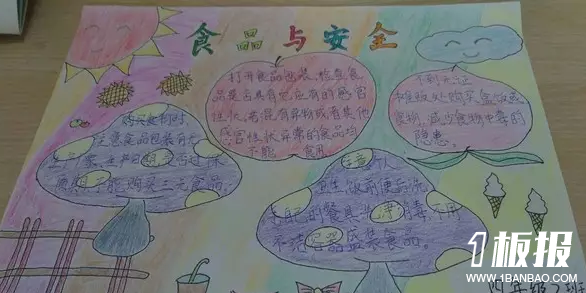 食品与安全
打开食品包装,检查食
品是否具有它应有的感官
性状。若是有异物或者其他
感官性状异常的食品均
不能 食用
不到无证
摊贩处购买盒饭或
食物,减少食物中毒的
隐患。
购买食物时,
注意食品包装有无
生产家、生产日期,是否过保
不能购买三无食品。
注意个人
卫生,饭前便后洗
手,
的餐具洗净消毒,不用
不洁容器盛装食品。
四年级2班
1板报
WWW.1BANBAO.COM